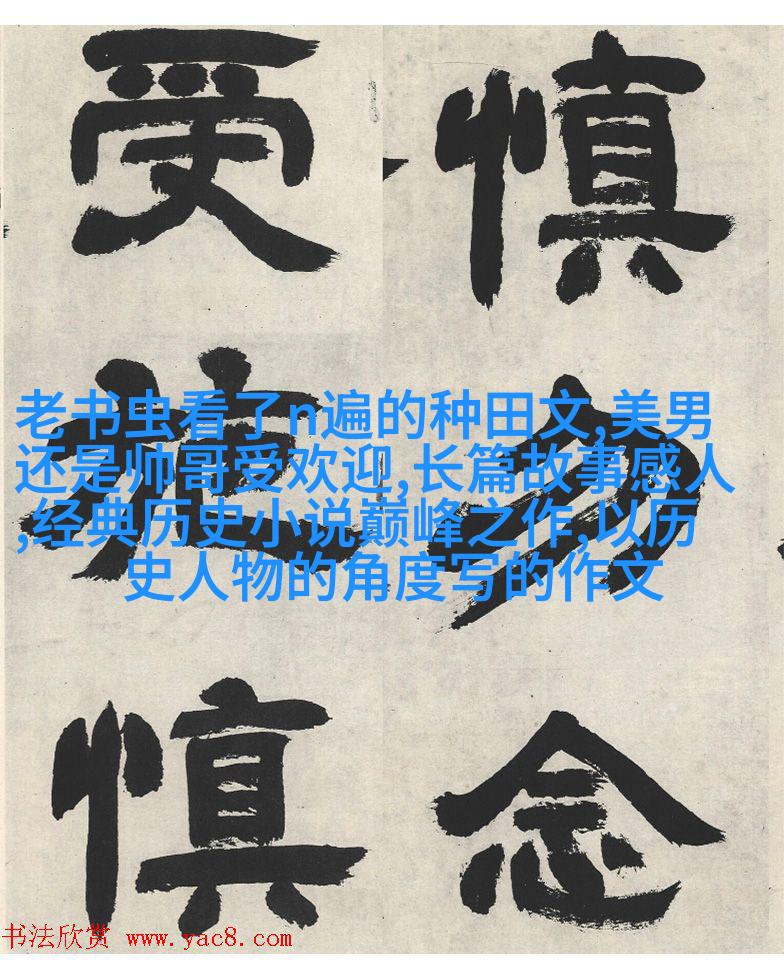 慎勿念
受施慎
老书虫看了n遍的种田文,美男
还是帅哥受欢迎,长篇故事感人
,经典历史小说巅峰之作,以历
史人物的角度写的作文
书法欣赏 www.yac8.com